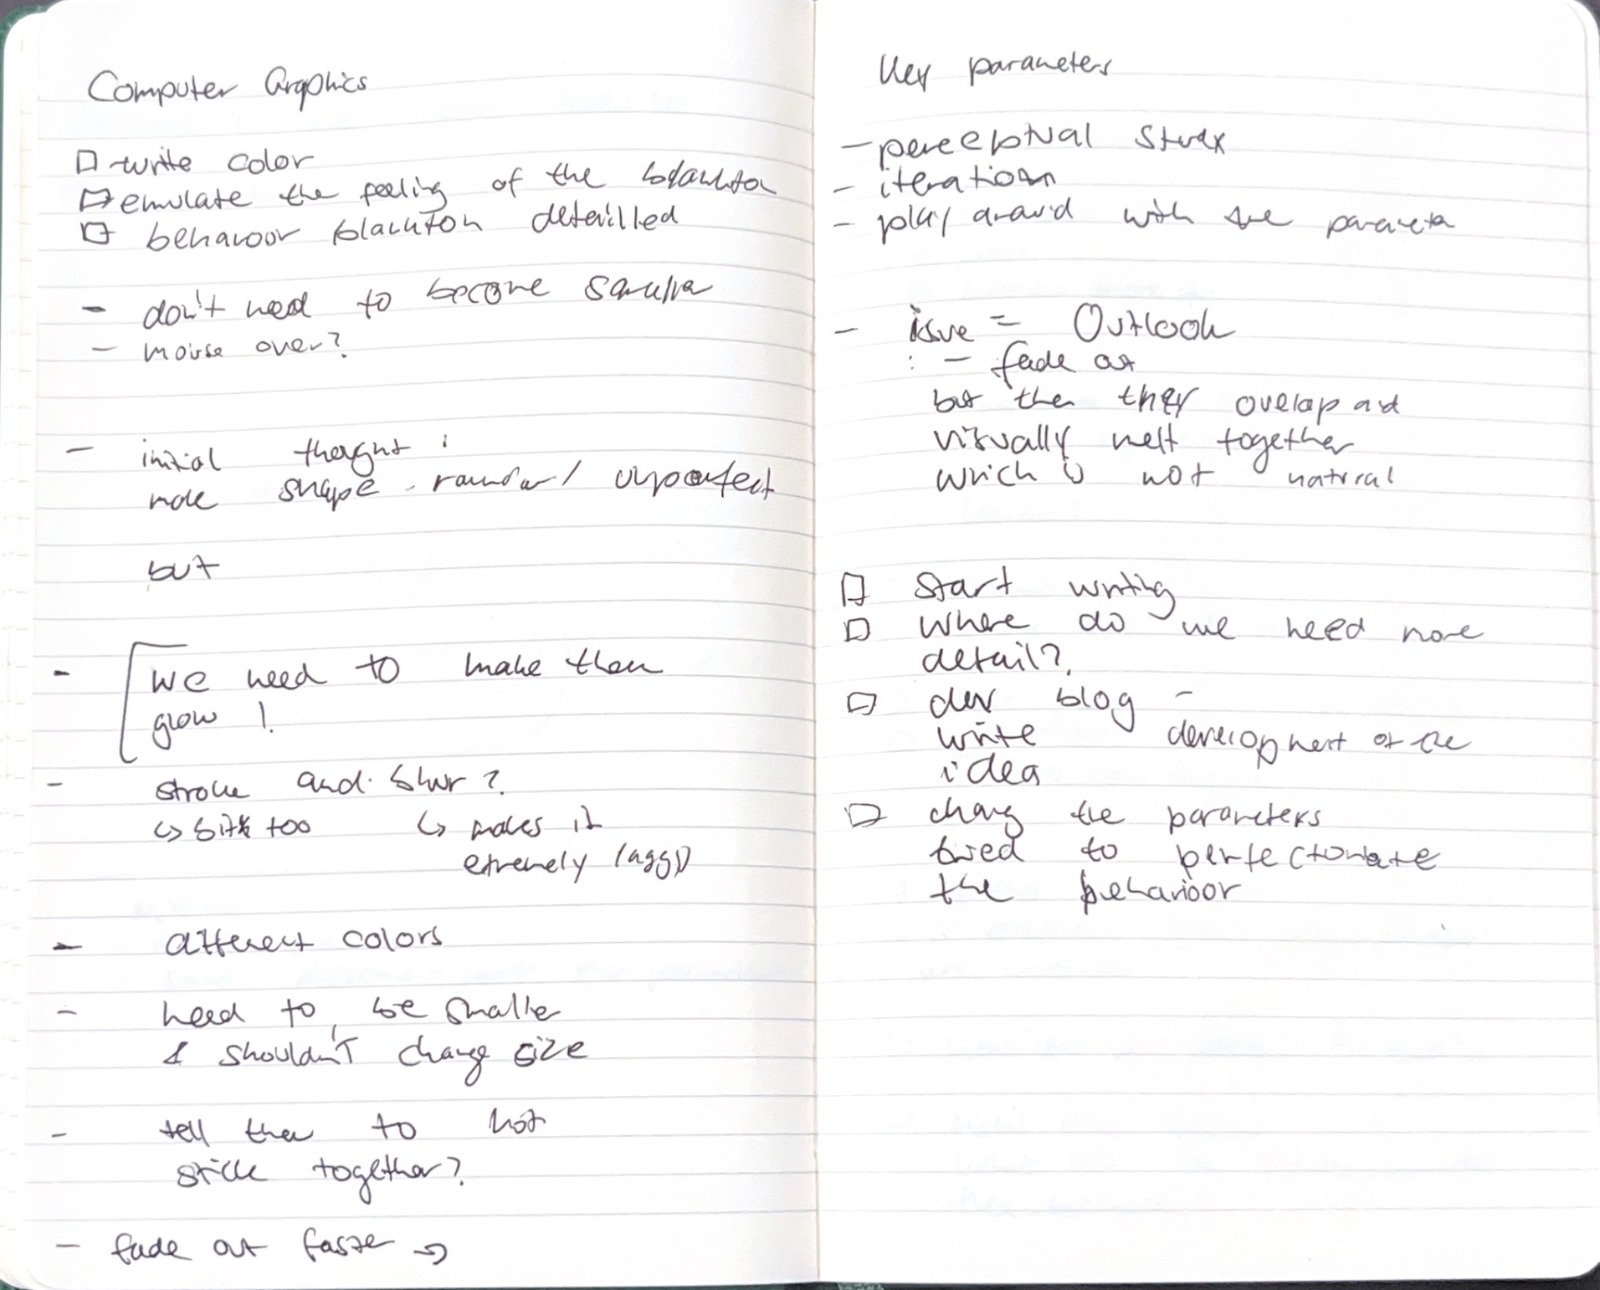 Computer Graphics
□ write color
□ emulate the feeling of the
□ behavoor plankton detailled
- don't need to become
- mouse over?
- initial thought:
more shape rounder / unperfect
but
- we need to make them
glow!
- stroke and blur?
↳ bit too ↳ makes it
extremely laggy
- different colors
- need to be smaller
& shouldn't change size
- tell them to not
stick together?
- fade out faster
Key parameters
- perceptual study
- iteration
- play around with the parameter
- issue = Outlook
: - fade out
but then they overlap and
visually melt together
which is not natural
□ start writing
□ where do we need more
detail?
□ dev blog -
write development of the
idea
□ chang the parameters
tweed to perfectionate
the behavioor